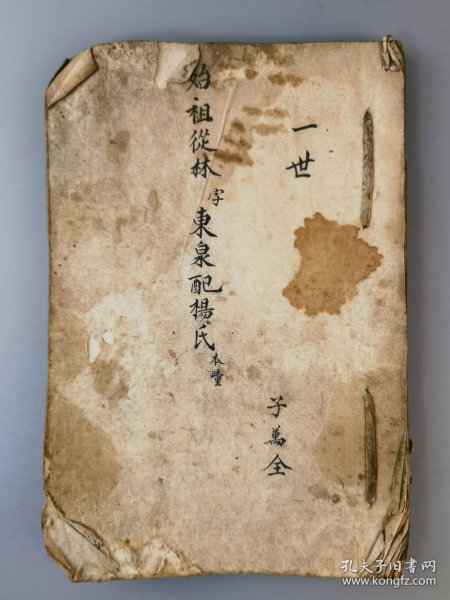 一世
子萬全
始祖從林字東泉配楊氏本疃
孔夫子旧书网
www.kongfz.com